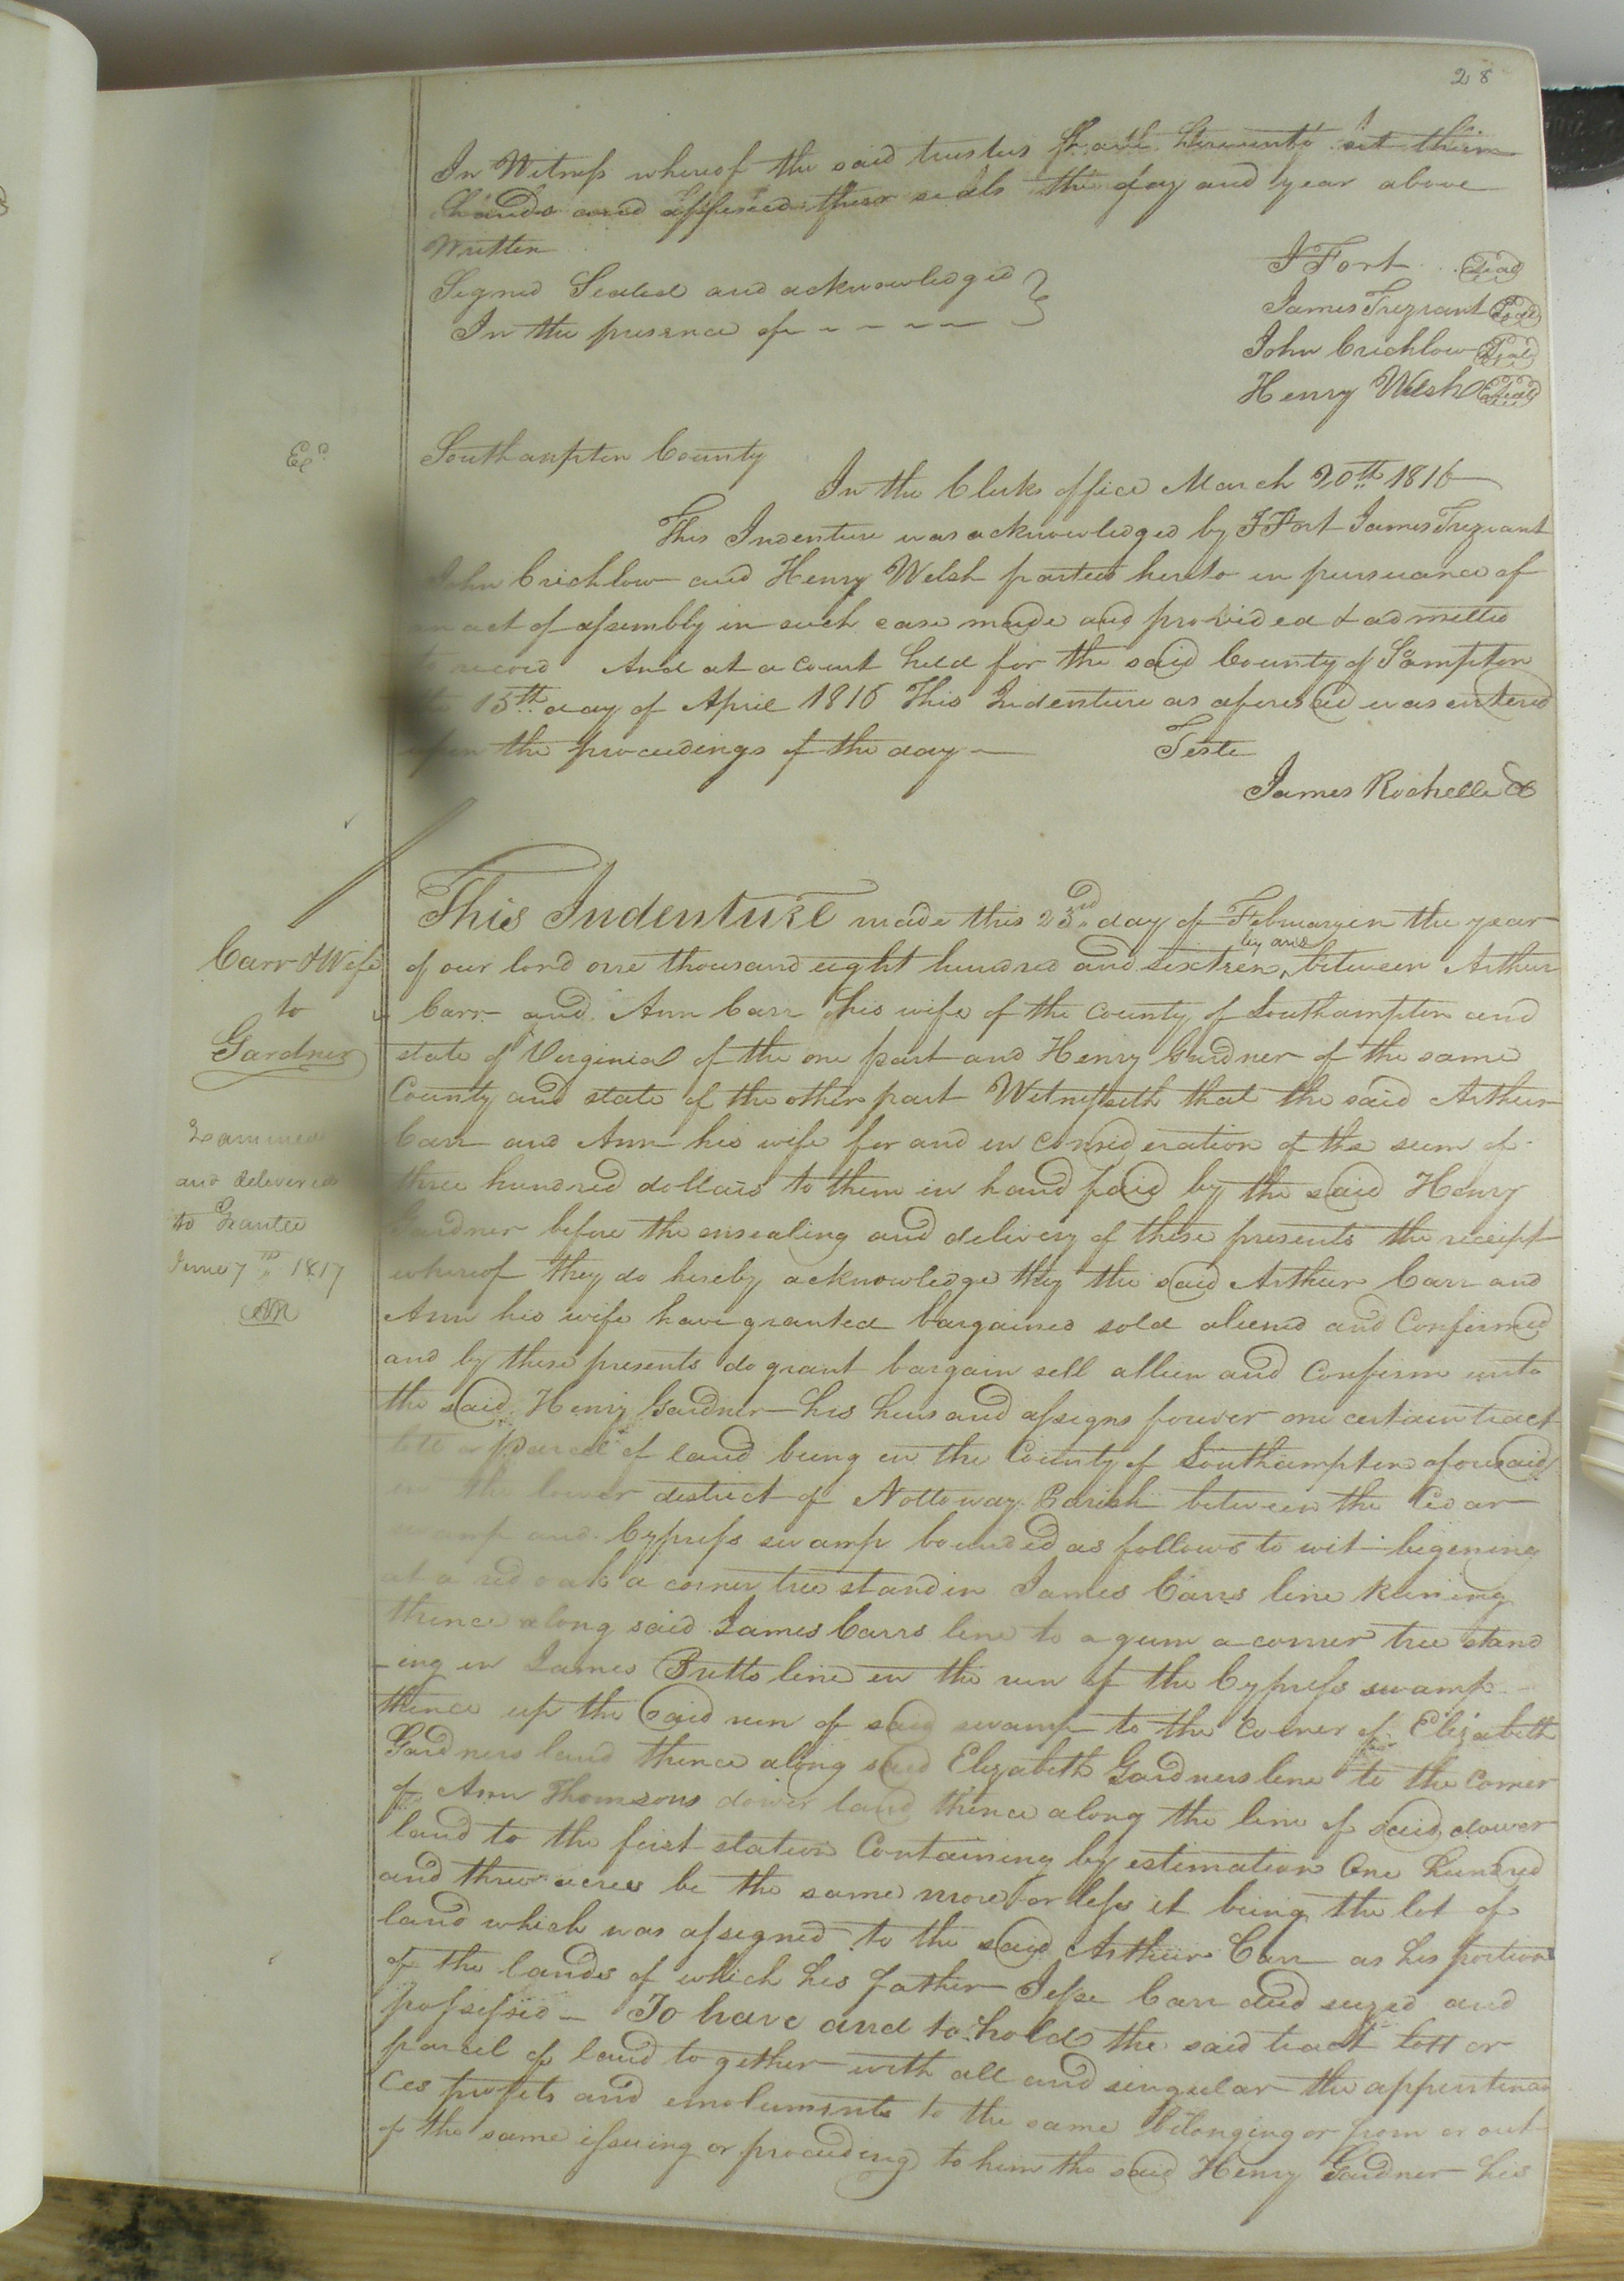 28
In Witness whereof the said trustees have hereunto set their
hands and affixed their seals the day and year above
Written
Signed Sealed and acknowledged
In the presence of
J Fort Seal
James Trezvant Seal
John Crichlow Seal
Henry Welsh Seal
Exd
Southampton County
In the Clerks office March 20th 1816
This Indenture was acknowledged by J Fort James Trezvant
John Crichlow and Henry Welsh parties hereto in pursuance of
an act of assembly in such case made and provided & admitted
to record And at a Court held for the said County of S°ampton
the 15th day of April 1816 This Indenture as aforesaid was entered
upon the proceedings of the day
Teste
James Rochelle
Carr & Wife
to
Gardner
Examined
and delivered
to Grantee
June 7th 1817
This Indenture made this 23rd day of February in the year
of our lord one thousand eight hundred and sixteen by and between Arthur
Carr and Ann Carr his wife of the County of Southampton and
state of Virginia of the one part and Henry Gardner of the same
County and state of the other part Witnesseth that the said Arthur
Carr and Ann his wife for and in consideration of the sum of
three hundred dollars to them in hand paid by the said Henry
Gardner before the ensealing and delivery of these presents the receipt
whereof they do hereby acknowledge they the said Arthur Carr and
Ann his wife have granted bargained sold aliened and Confirmed
and by these presents do grant bargain sell allien and Confirm unto
the said Henry Gardner his heirs and assigns forever one certain tract
lott or parcel of land being in the County of Southampton aforesaid
in the lower district of Nottoway Parish between the Cedar
swamp and Cypress swamp bounded as follows to wit begening
at a red oak a corner tree stand in James Carrs line Runing
thence along said James Carrs line to a gum a corner tree stand
ing in James Butts line in the run of the Cypress swamp
thence up the said run of said swamp to the Corner of Elizabeth
Gardners land thence along said Elizabeth Gardners line to the Corner
of Ann Thomsons dower land thence along the line of said dower
land to the first station Containing by estimation One hundred
and three acres be the same more or less it being the lot of
land which was assigned to the said Arthur Carr as his portion
of the lands of which his father Jesse Carr died seized and
possessed To have and to hold the said tract lott or
parcel of land together with all and singular the appurtenan
ces profits and emoluments to the same belonging or from or out
of the same issuing or proceeding to him the said Henry Gardner his